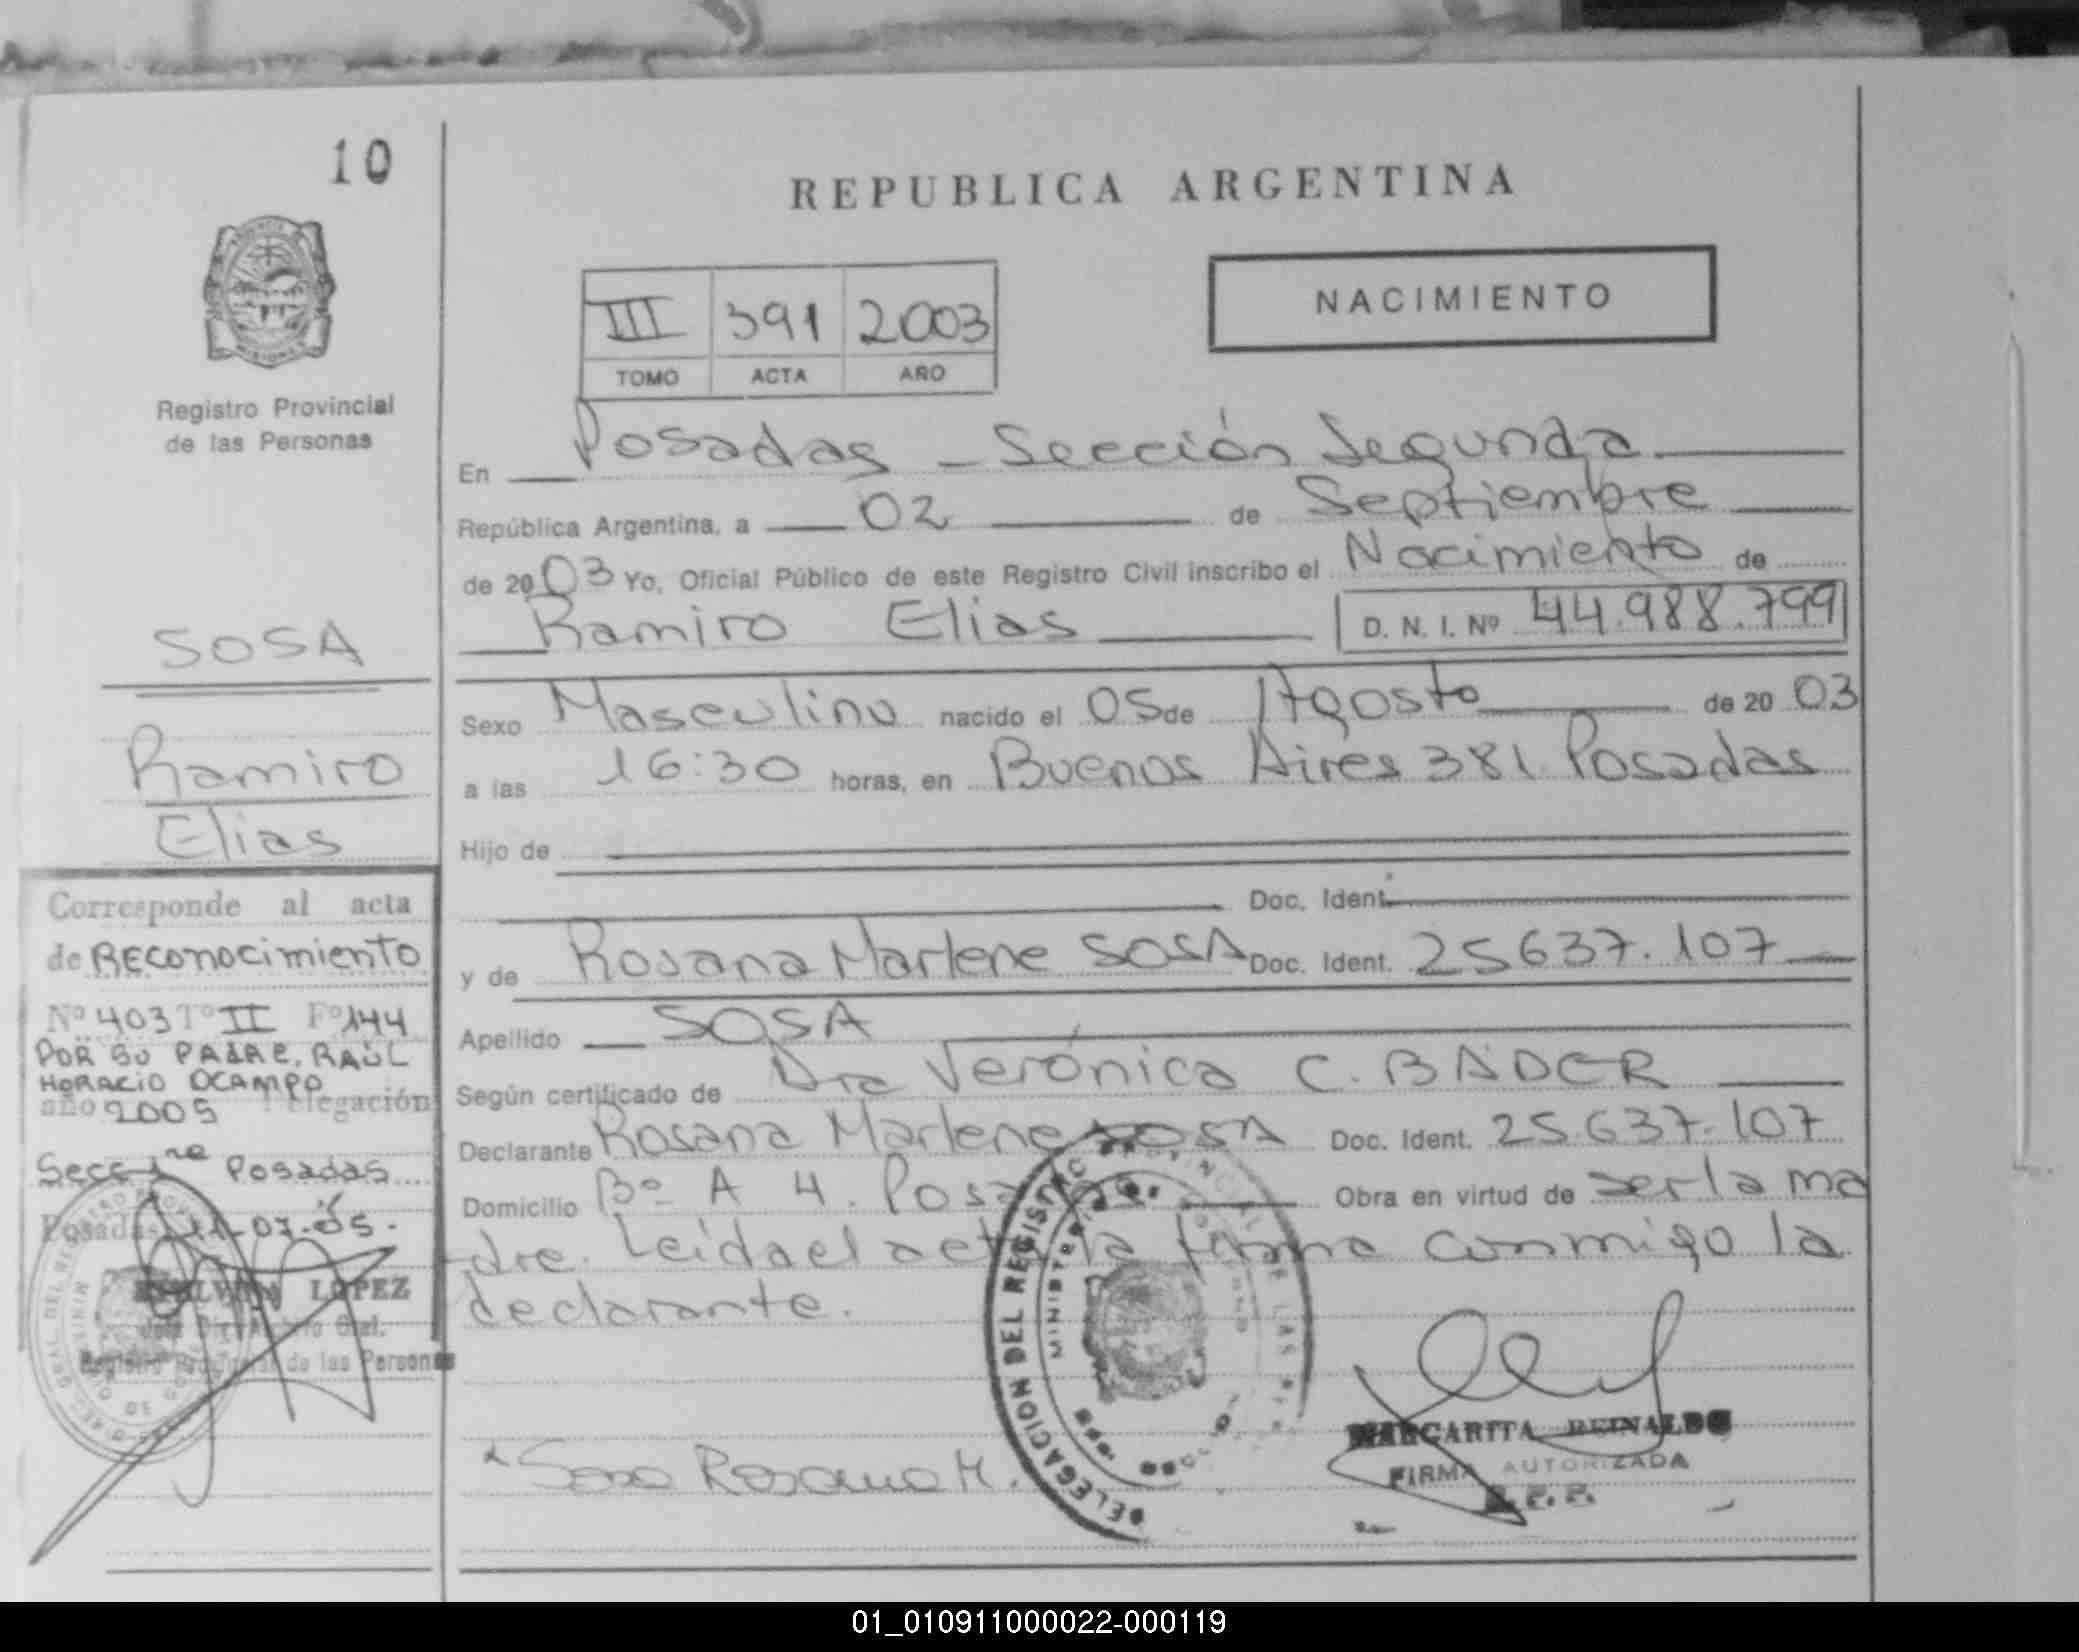 10
REPUBLICA ARGENTINA
NACIMIENTO
III 391 2003
TOMO ACTA AÑO
Registro Provincial
de las Personas
MISIONES
En Posadas - Sección Segunda
República Argentina, a 02 de Septiembre
de 2003 Yo, Oficial Público de este Registro Civil inscribo el Nacimiento de
Ramiro Elias D. N. I. Nº 44.988.799
Sexo Masculino nacido el 05 de Agosto de 2003
a las 16:30 horas, en Buenos Aires 381 Posadas
Hijo de
Doc. Ident.
y de Rosana Marlene SOSA Doc. Ident. 25637.107
Apellido SOSA
Según certificado de Dra Verónica C. BADER
Declarante Rosana Marlene SOSA Doc. Ident. 25.637.107
Domicilio Bº A 4. Posadas Obra en virtud de ser la ma
dre. Leida el acta la firma conmigo la
declarante.
Sosa Rosana M.
DELEGACION DEL REGISTRO PROVINCIAL DE LAS
MINISTERIO GOBIERNO
MARGARITA REINALDO
FIRMA AUTORIZADA
SOSA
Ramiro
Elias
Corresponde al acta
de RECONOCIMIENTO
Nº 403 Tº II Fº 144
POR SU PADRE, RAÚL
HORACIO OCAMPO
año 2005 Delegación
Secc 1ra Posadas
Posadas 11-07-05.
LOPEZ
Registro Provincial de las Personas
01_010911000022-000119